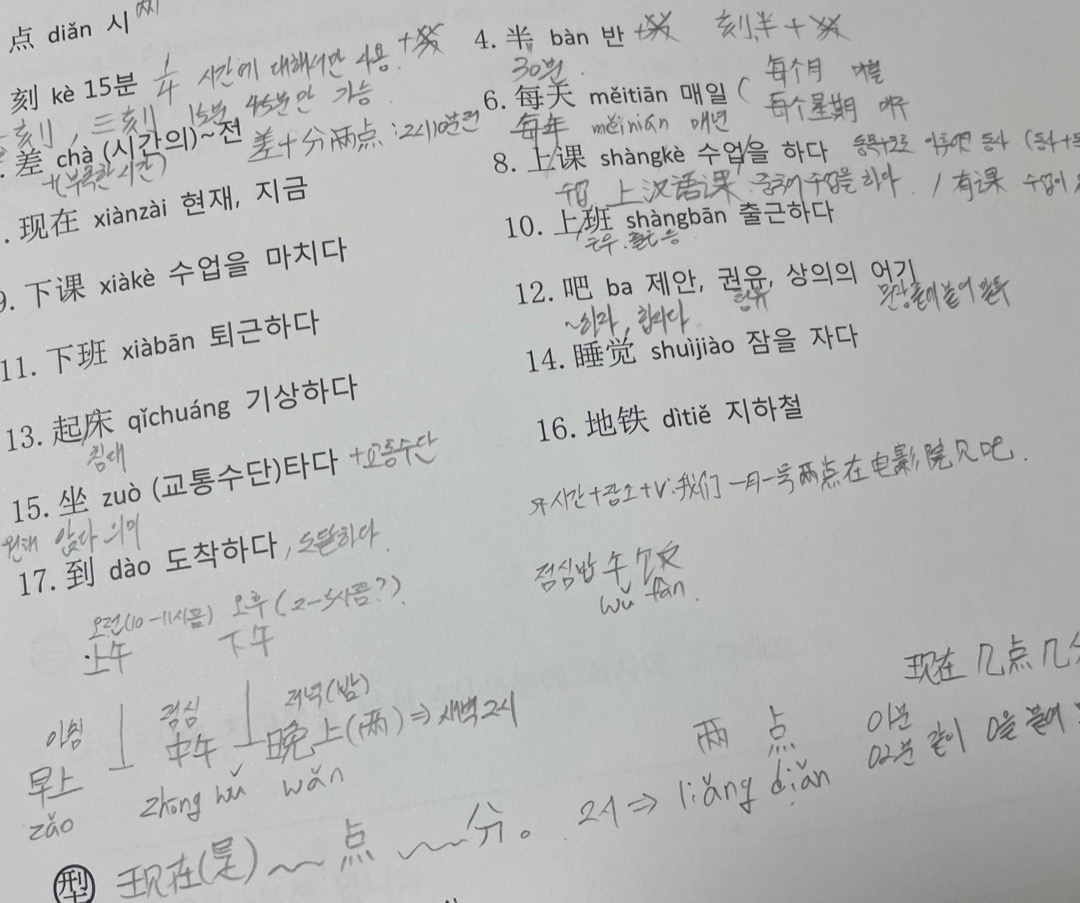 点 diǎn 시
刻 kè 15분 1/4 시간에 대해서만 사용.
一刻, 三刻 15분 45분만 가능
差 chà (시간의)~전 差十分两点 : 2시10분전
+(부족한 시간)
现在 xiànzài 현재, 지금
9. 下课 xiàkè 수업을 마치다
11. 下班 xiàbān 퇴근하다
13. 起床 qǐchuáng 기상하다
침대
15. 坐 zuò (교통수단)타다 +교통수단
원래 앉다 의미
17. 到 dào 도착하다, 도달하다
4. 半 bàn 반
30분.
6. 每天 měitiān 매일 ( 每个月 매월
每年 měinián 매년 每个星期 매주
8. 上课 shàngkè 수업을 하다
수업 上汉语课 : 중국어 수업을 하다. / 有课 수업이
10. 上班 shàngbān 출근하다
12. 吧 ba 제안, 권유, 상의의 어기
~하자, 합시다
14. 睡觉 shuìjiào 잠을 자다
16. 地铁 dìtiě 지하철
시간+장소+V : 我们 一月一号两点在电影院见吧.
점심밥 午饭
wǔ fàn.
오전(10-11시쯤) 오후 (2-5시쯤?)
上午 下午
아침 점심 저녁(밤)
早上 中午 晚上(两) ⇒ 새벽 2시
zǎo zhōng wǔ wǎn
现在 几点几分
两点 01분
02분 같이 0을 붙여
2시 ⇒ liǎng diǎn
型 现在(是) ~ 点 ~ 分。